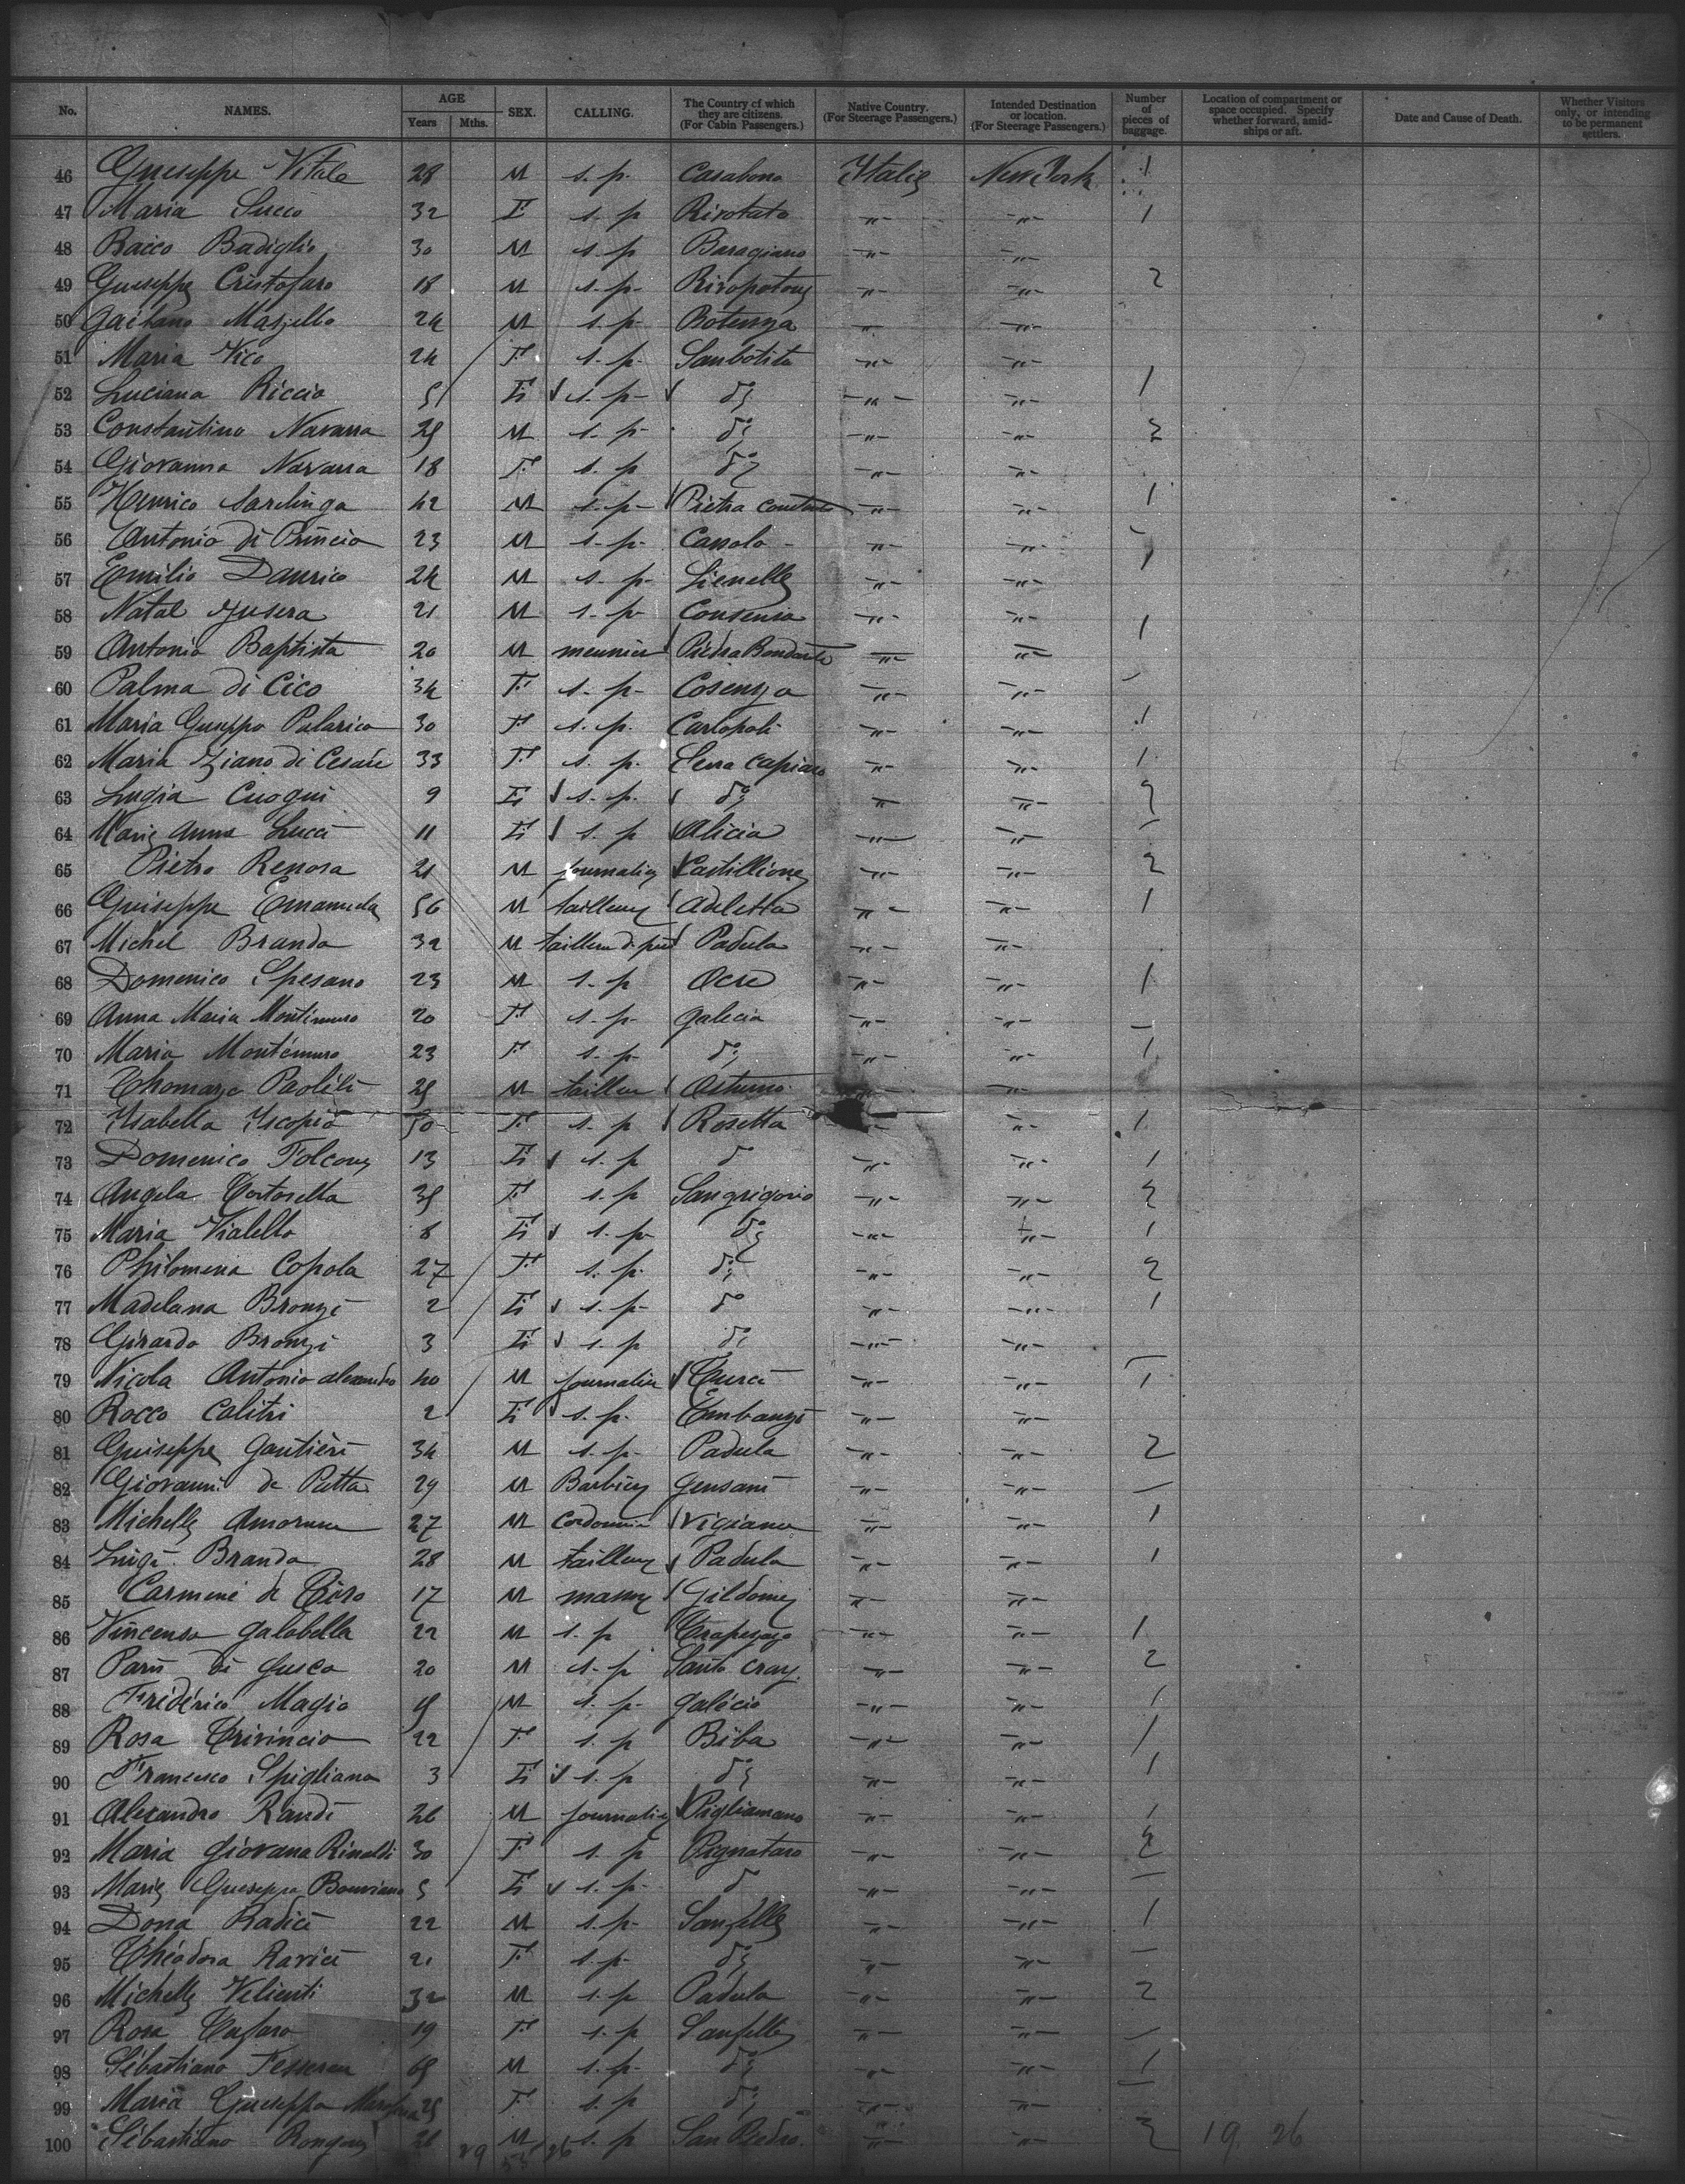 No. NAMES. AGE Years Mths. SEX. CALLING. The Country of which they are citizens. (For Cabin Passengers.) Native Country. (For Steerage Passengers.) Intended Destination or location. (For Steerage Passengers.) Number of pieces of baggage. Location of compartment or space occupied. Specify whether forward, amidships or aft. Date and Cause of Death. Whether Visitors only, or intending to be permanent settlers.
46 Guiseppe Vitale 28 M s. p. Casabona Italie New York 1
47 Maria Succo 32 F s. p Rivotato -"- -"- 1
48 Rocco Badiglio 30 M s. p Baragiano -"- -"-
49 Guiseppe Cristofaro 18 M s. p. -"- -"- 2
50 Gaëtano Maszello 24 M s. p. Botenza -"- -"-
51 Maria Vico 24 F s. p. -"- -"-
52 Luciana Riccio 51 s. p. do -"- -"- 1
53 Constantino Navarra 25 M s. p. do -"- -"- 2
54 Giovanna Navarra 18 F s. p do -"- -"-
55 Henrico Sarlinga 42 M s. p. Pietra -"- -"- 1
56 Antonio di 23 M s. p. Cassolo -"- -"-
57 Emilio Daurico 24 M s. p. -"- -"- 1
58 Natal 21 M s. p. Consensa -"- -"-
59 Antonio Baptista 20 M meunier -"- -"- 1
60 Palma di Cico 34 F s. p. Cosenza -"- -"-
61 Maria Guseppa Palarico 30 F s. p. Carlopoli -"- -"- 1
62 Maria Ziano di Cesare 33 F s. p. -"- -"- 1
63 Lugia Cuoqui 9 s. p. do -"- -"- 2
64 Marie Anna Lucci 11 s. p Alicia -"- -"-
65 Pietro Renosa 21 M journalier Castillione -"- -"- 2
66 Guiseppe Emanuela 56 M tailleur Adeletta -"- -"- 1
67 Michel Branda 32 M Padula -"- -"-
68 Domenico Spesano 23 M s. p Ocre -"- -"- 1
69 Anna Maria Montimuro 20 F s. p. Galecia -"- -"-
70 Maria Montemuro 23 F s. p. do -"- -"- 1
71 Thomazo Paolili 25 M tailleur Ostuno -"- -"-
72 Isabella Iscopio 50 F s. p Rosetta -"- -"- 1
73 Domenico Folcone 13 s. p do -"- -"- 1
74 Angela Tortosella 35 F s. p Sangrigorio -"- -"- 2
75 Maria Vialello 8 s. p. do -"- -"- 1
76 Philomena Copola 27 F s. p. do -"- -"- 2
77 Madelana Bronzi 2 s. p. do -"- -"- 1
78 Girardo Bronzi 3 s. p do -"- -"-
79 Nicola Antonio Alexandro 40 M journalier Tursi -"- -"- 1
80 Rocco Calitri 2 s. p. -"- -"-
81 Guiseppe Gautieri 34 M s. p. Padula -"- -"- 2
82 Giovanni de Patta 29 M Barbier Gensani -"- -"-
83 Michelle Amorusa 27 M cordonnier Vigiano -"- -"- 1
84 Luigi Branda 28 M tailleur Padula -"- -"- 1
85 Carmené de Ciero 17 M Gildone -"- -"-
86 Vincenso Galabella 22 M s. p -"- -"- 1
87 di Gusco 20 M s. p Santo Cray. -"- -"- 2
88 Frédérico Magio M s. p. Galécio -"- -"- 1
89 Rosa Trivincio 22 F s. p Biba -"- -"- 1
90 Francesco Spigliana 3 s. p do -"- -"- 1
91 Alexandro Randi 26 M journalier Pigliamano -"- -"- 1
92 Maria Giovana Rinaldi 30 F s. p Pignataro -"- -"- 2
93 Marie Guiseppa 5 s. p. do -"- -"-
94 Dona Radice 22 M s. p. Sanfelle -"- -"- 1
95 Théodora Ravice 21 F s. p. do -"- -"-
96 Michelle Velienti 32 M s. p Padula -"- -"- 2
97 Rosa Cafaro 19 F s. p Sanfelle -"- -"-
98 Sébastiano 65 M s. p. do -"- -"- 1
99 Maria Guiseppa 25 F s. p do -"- -"-
100 Sébastiano 26 M s. p San Piedro -"- -"- 2 19 26